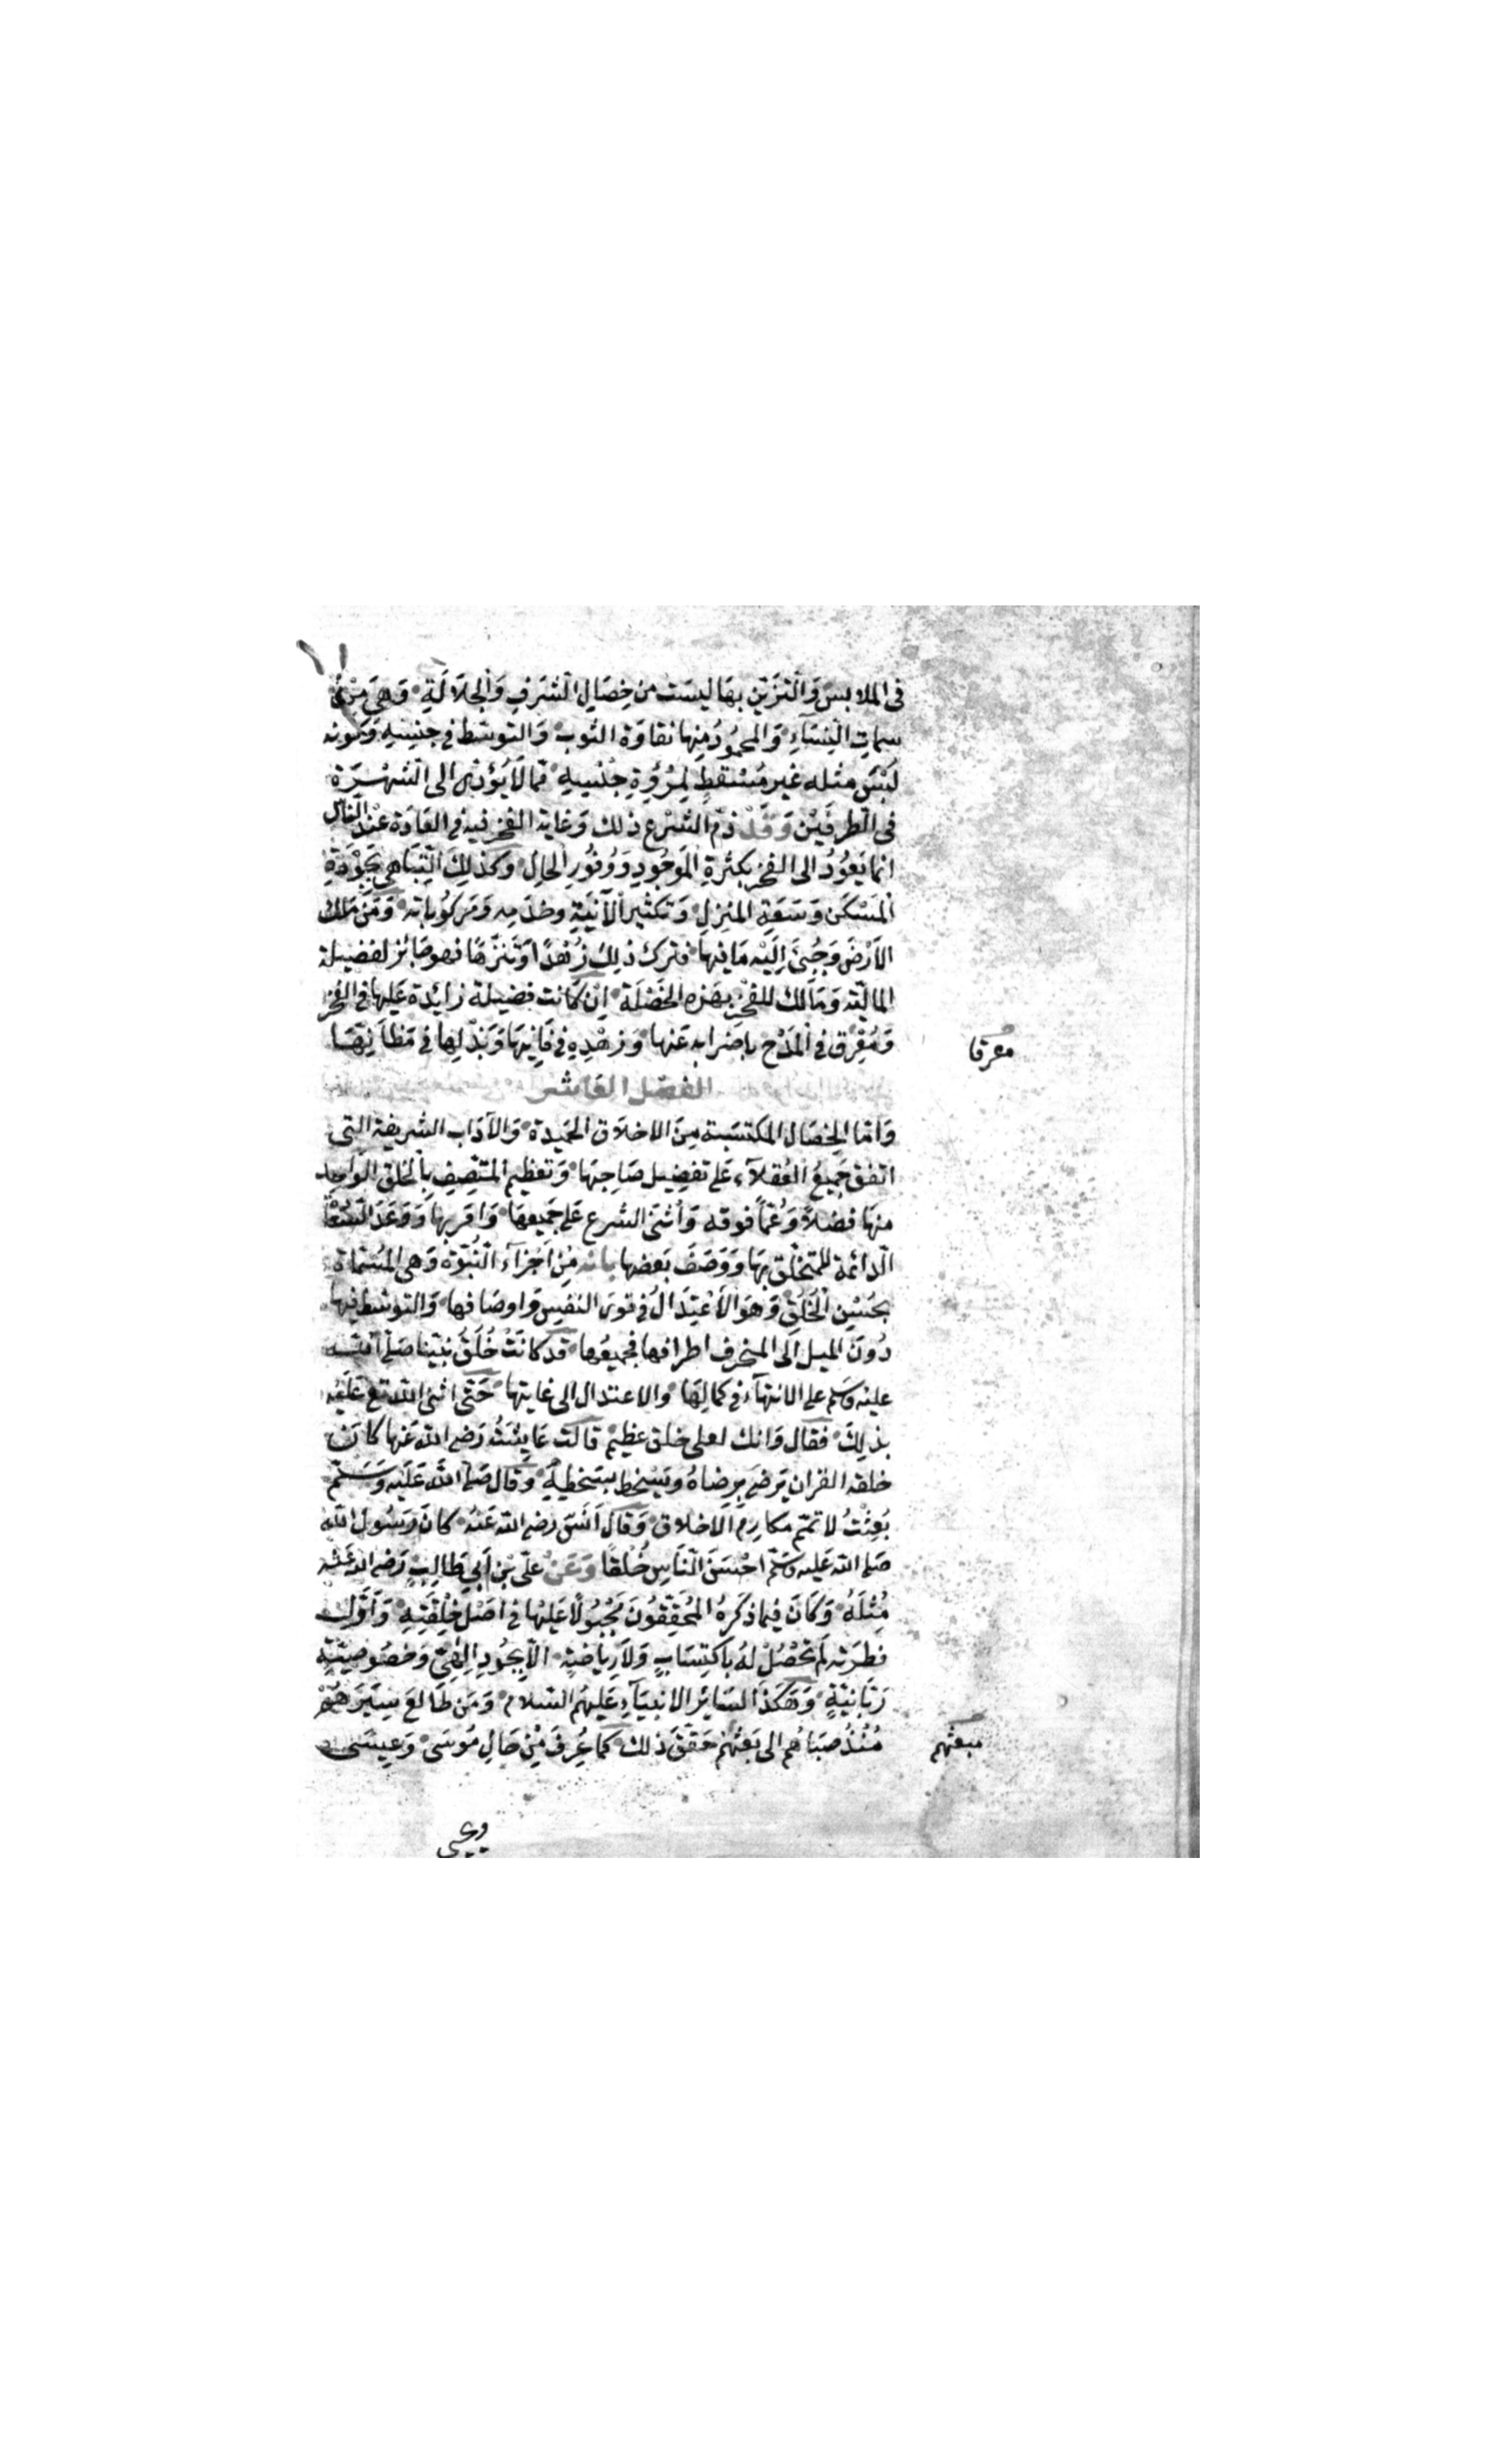 في الملابس وَالتَزَيّنِ بهَا ليسَت من خِصَالِ الشَرَفِ وَالجلاَلَةِ وَهيَ مِنْ
سماتِ النِسَآءِ وَالمحمُودُ مِنها نقاوَة الثوب وَالتوسّط في جنسِهِ وَكونه
لبسَ مثله غير مُسْقطٍ لِمرُؤَةِ جنسِهِ ممّا لاَ يُؤدّى الى الشهْرَة
في الطرفَيْن وَقَدْ ذمّ الشرْع ذلك وَغاية الفخر فيه في العَادَة عنْد الناس
انما يَعُودُ الى الفخر بكثرةِ الموجُودِ وَوُفُورِ الحالِ وكذلِكَ التبَاهي بجَوْدَةِ
المسْكَن وَسَعَةِ المنزلِ وَتكثير الآنيَةِ وخدَمِه وَمَركُوباته وَمَن مَلك
الأرْضَ وَجُبىَ اِليْه مَا فيها فترك ذلِك زُهْدًا وَتَنزّهًا فهو حَائز لفضيلة
الماليّة وَمَالك للفخْر بهَذه الخصْلَة اِنْ كانت فضيلة زايدة عَليها في الفخر
وَمُعْرِق في المَدْح باِضرابه عَنها وَزهْدِهِ في فَانِيهَا وَبَذلِها في مَظانِهَا
معرقا
الفصل العَاشر
وَامّا الخصَال المكتسَبة مِنَ الاخلاَق الحميدة وَالآدَاب الشريفة التي
اتفقَ جَميعُ العُقلآء عَلى تفضيل صَاحِبهَا وَتعظيم المتّصِفِ بالخلق الوَاحِد
منهَا فضلاً وَعُمّا فوقه وَأثنى الشرع عَلى جَميعهَا وَامَر بها وَوَعَدَ السّعَا
الدائمة للمتخلّق بهَا وَوَصَفَ بَعضها بانه مِنْ اَجزآء النبُوّة وَهي المسَمّاة
بحُسْنِ الخُلُقِ وَهوَ الاعْتِدَالُ في قوَى النفس وَاوصَافها وَالتوسّط فيها
دُونَ الميل اَلى المنحرف اطرافها فجميعُها قد كانَتْ خُلقَ نبيّنا صَلى الله
عليه وسَلم على الانتهآء في كمالِهَا والاعتدال الى غايتها حَتى اثنى الله تع عَليْه
بذلِكَ فقال وَانك لعلى خلق عظيم قالت عَايشَةُ رَضي الله عَنها كان
خلقه القران يَرضى برضاهُ وَيَسْخط بسَخطِهِ وَقال صَلى الله عَليه وَسَلّم
بُعِثْتُ لاتمّم مكارمَ الاخلاق وَقال اَنسَ رضي الله عَنه كانَ رَسُول الله
صَلى الله عَليه وسَلّم احْسَنَ النَاسِ خُلقًا وَعَنْ علىّ بن أبي طَالِبٍ رَضي الله عَنه
مثلَهُ وَكَانَ فيما ذكرَهُ المحُقِقُونَ مجْبُولاً عَليْها في اَصْل خِلْقَتِهِ وَأوّل
فطرَته لَم تحْصُلْ لهُ باكتِسَابٍ وَلاَ رياضَةٍ الاّ بجُودٍ اِلهىّ وَخصُوصيّةٍ
رَبّانيّةٍ وَهَكَذا لسَائر الانبيَآءِ عَليهمُ السّلام وَمَن طَالعَ سِيَرَهُمْ
مُنْذُ صبَاهُم الى بَعْثهم حَققَ ذلك كما عُرِفَ مِنْ حَالِ مُوسَى وَعِيسَى
مبعثهم
ويحيى